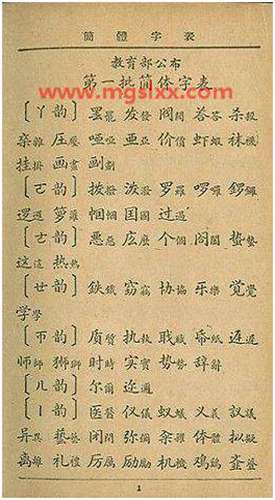 簡體字表
www.mgslxx.com
教育部公布
第一批简体字表
〔ㄚ韵〕罢罷 发發 阀閥 答荅 杀殺
杂雜 压壓 哑啞 亚亞 价價 虾蝦 袜襪
挂掛 画畫 划劃
〔ㄛ韵〕拨撥 泼潑 罗羅 啰囉 锣鑼
逻邏 箩籮 帼幗 国國 过過
〔ㄜ韵〕恶惡 庅麼 个個 阁閣 蛰蟄
这這 热熱
〔ㄝ韵〕鉄鐵 窃竊 协協 乐樂 觉覺
学學
〔ㄭ韵〕质質 执執 职職 帋紙 迟遲
师師 狮獅 时時 实實 势勢 辞辭
〔ㄦ韵〕尔爾 迩邇
〔ㄧ韵〕医醫 仪儀 蚁蟻 义義 议議
异異 艺藝 闭閉 弥彌 籴糴 体體 拟擬
离離 礼禮 厉厲 励勵 机機 鸡鷄
1